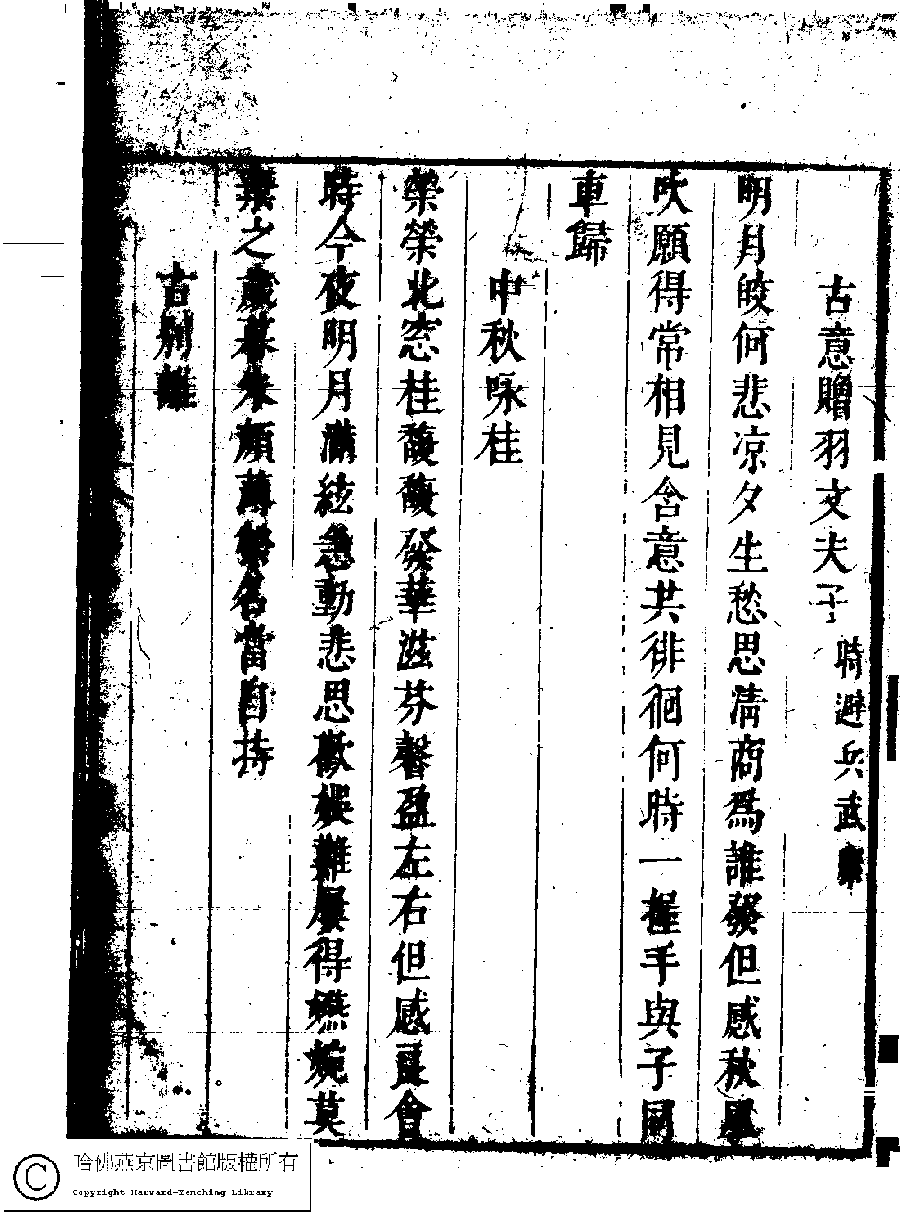 古意贈羽文夫子 時避兵武康
明月皎何悲凉夕生愁思清商爲誰發但感秋風
吹願得常相見含意共徘徊何時一握手與子同
車歸
中秋咏桂
榮榮北窓桂馥馥發華滋芬馨盈左右但感良會
時今夜明月滿絃急動悲思歡娱難屢得嬿婉莫
棄之歲暮朱顔薄榮名當自持
古別離
哈佛燕京圖書館版權所有
Copyright Harvard-Yenching Library